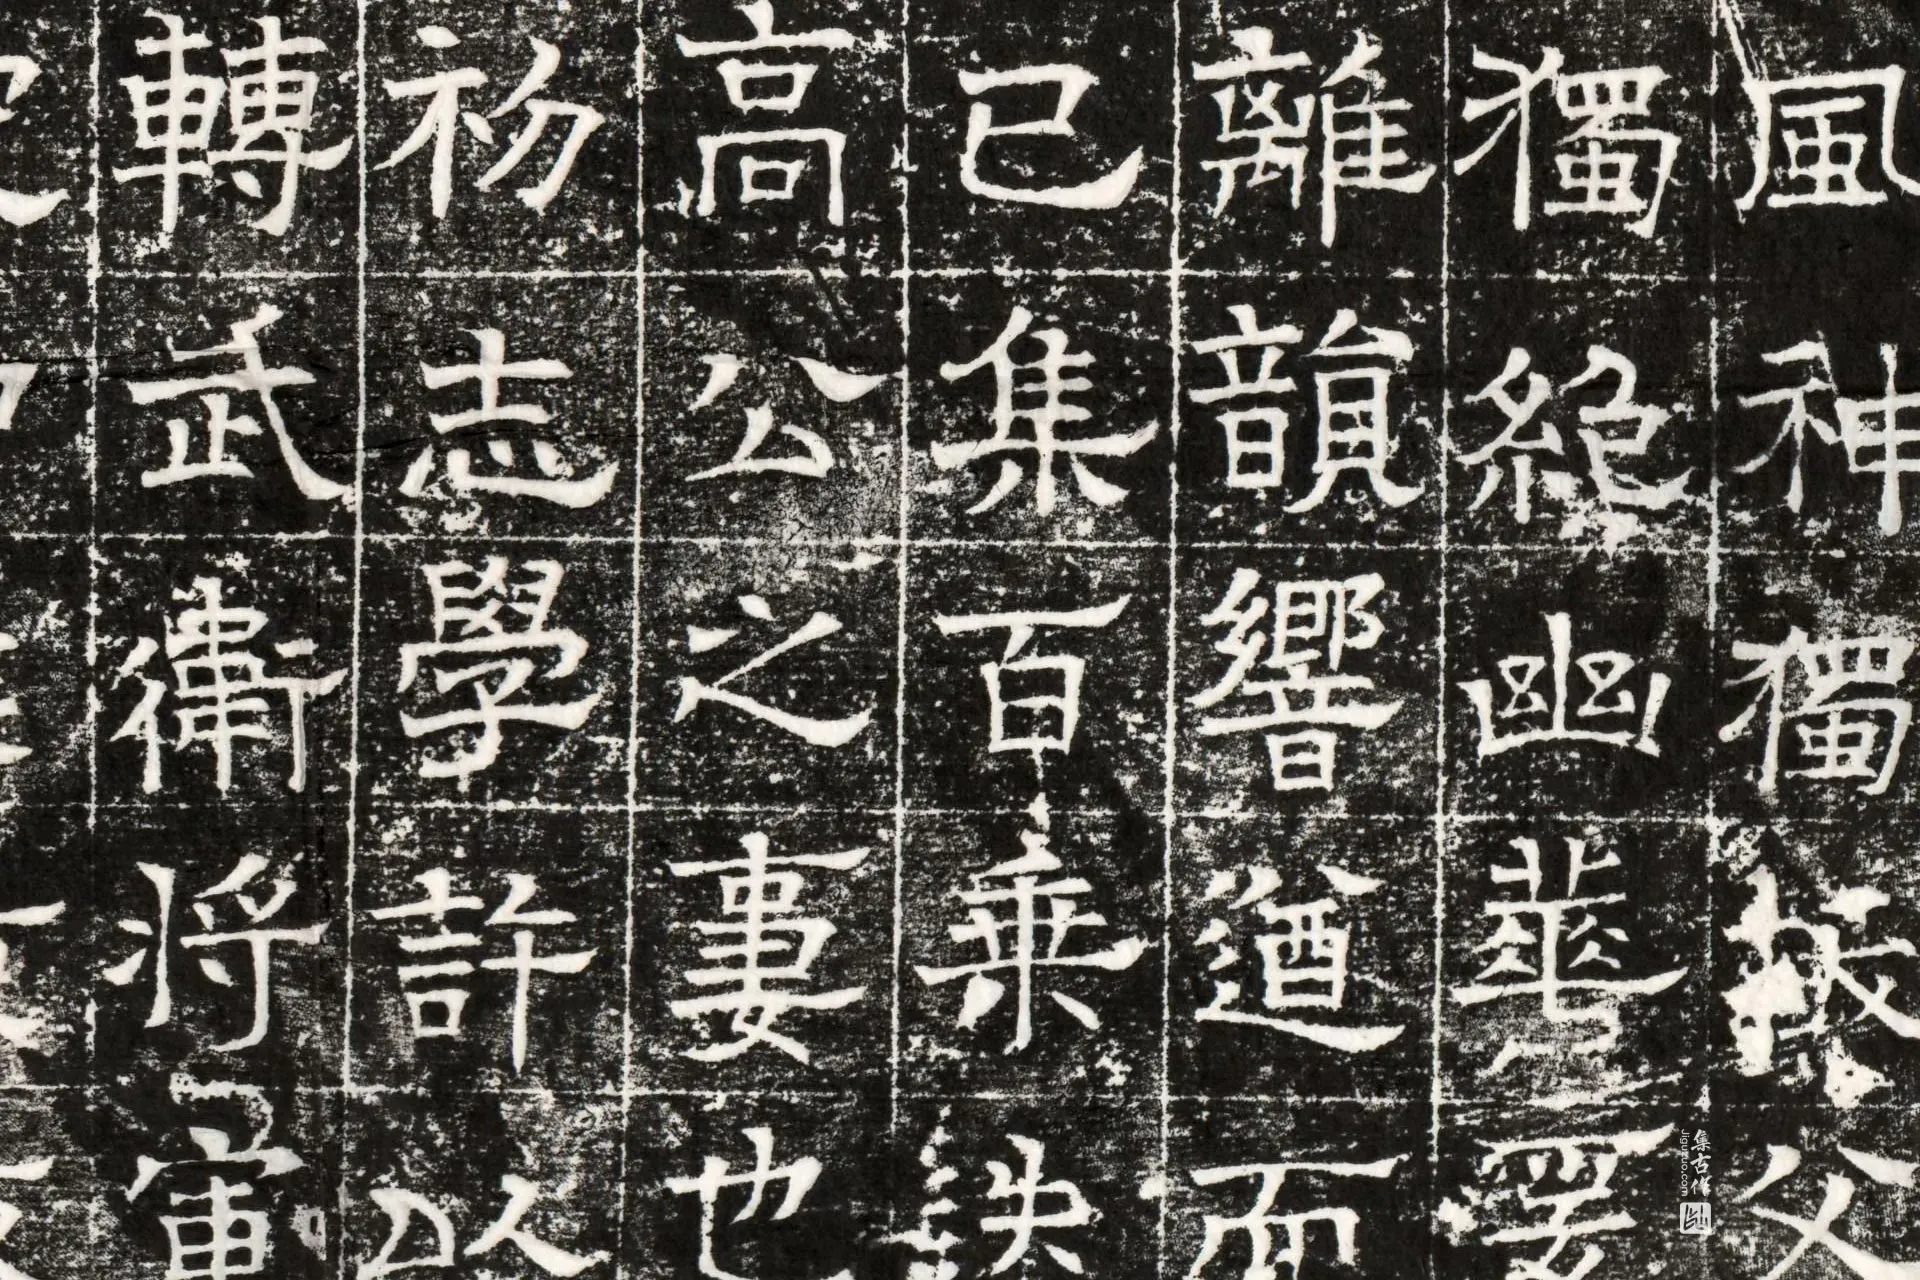 風神獨父
獨絕幽華
離韻響遒而
已集百乗
高公之妻也
初志學許以
轉武衛将軍
集古作
jiguzuo.com